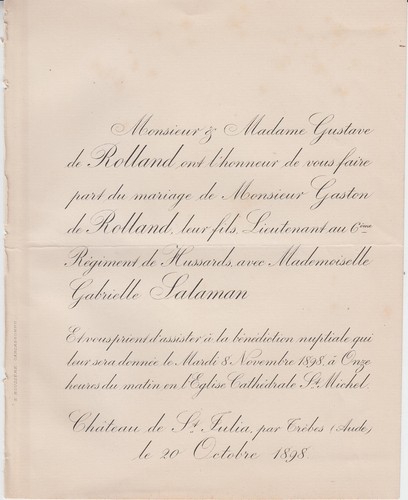 Monsieur & Madame Gustave
de Rolland ont l'honneur de vous faire
part du mariage de Monsieur Gaston
de Rolland, leur fils, Lieutenant au 6ème
Régiment de Hussards, avec Mademoiselle
Gabrielle Salaman
Et vous prient d'assister à la bénédiction nuptiale qui
leur sera donnée le Mardi 8 Novembre 1898, à Onze
heures du matin en l'Eglise Cathédrale St. Michel.
Château de St. Julia, par Trèbes (Aude)
le 20 Octobre 1898